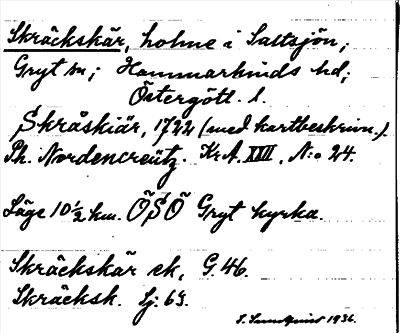 Skräckskär, holme i Saltsjön;
Gryt sn; Hammarkinds hd;
Östergötl. l.
Skråskiär, 1722 (med kartbeskrivn.)
Ph. Nordencreütz. Kr.A. XXIII, N:o 24.
Läge 10 1/2 km. ÖSÖ Gryt kyrka.
Skräckskär ek, G. 46.
Skräcksk. Sj: 63.
S. Sundquist 1936.